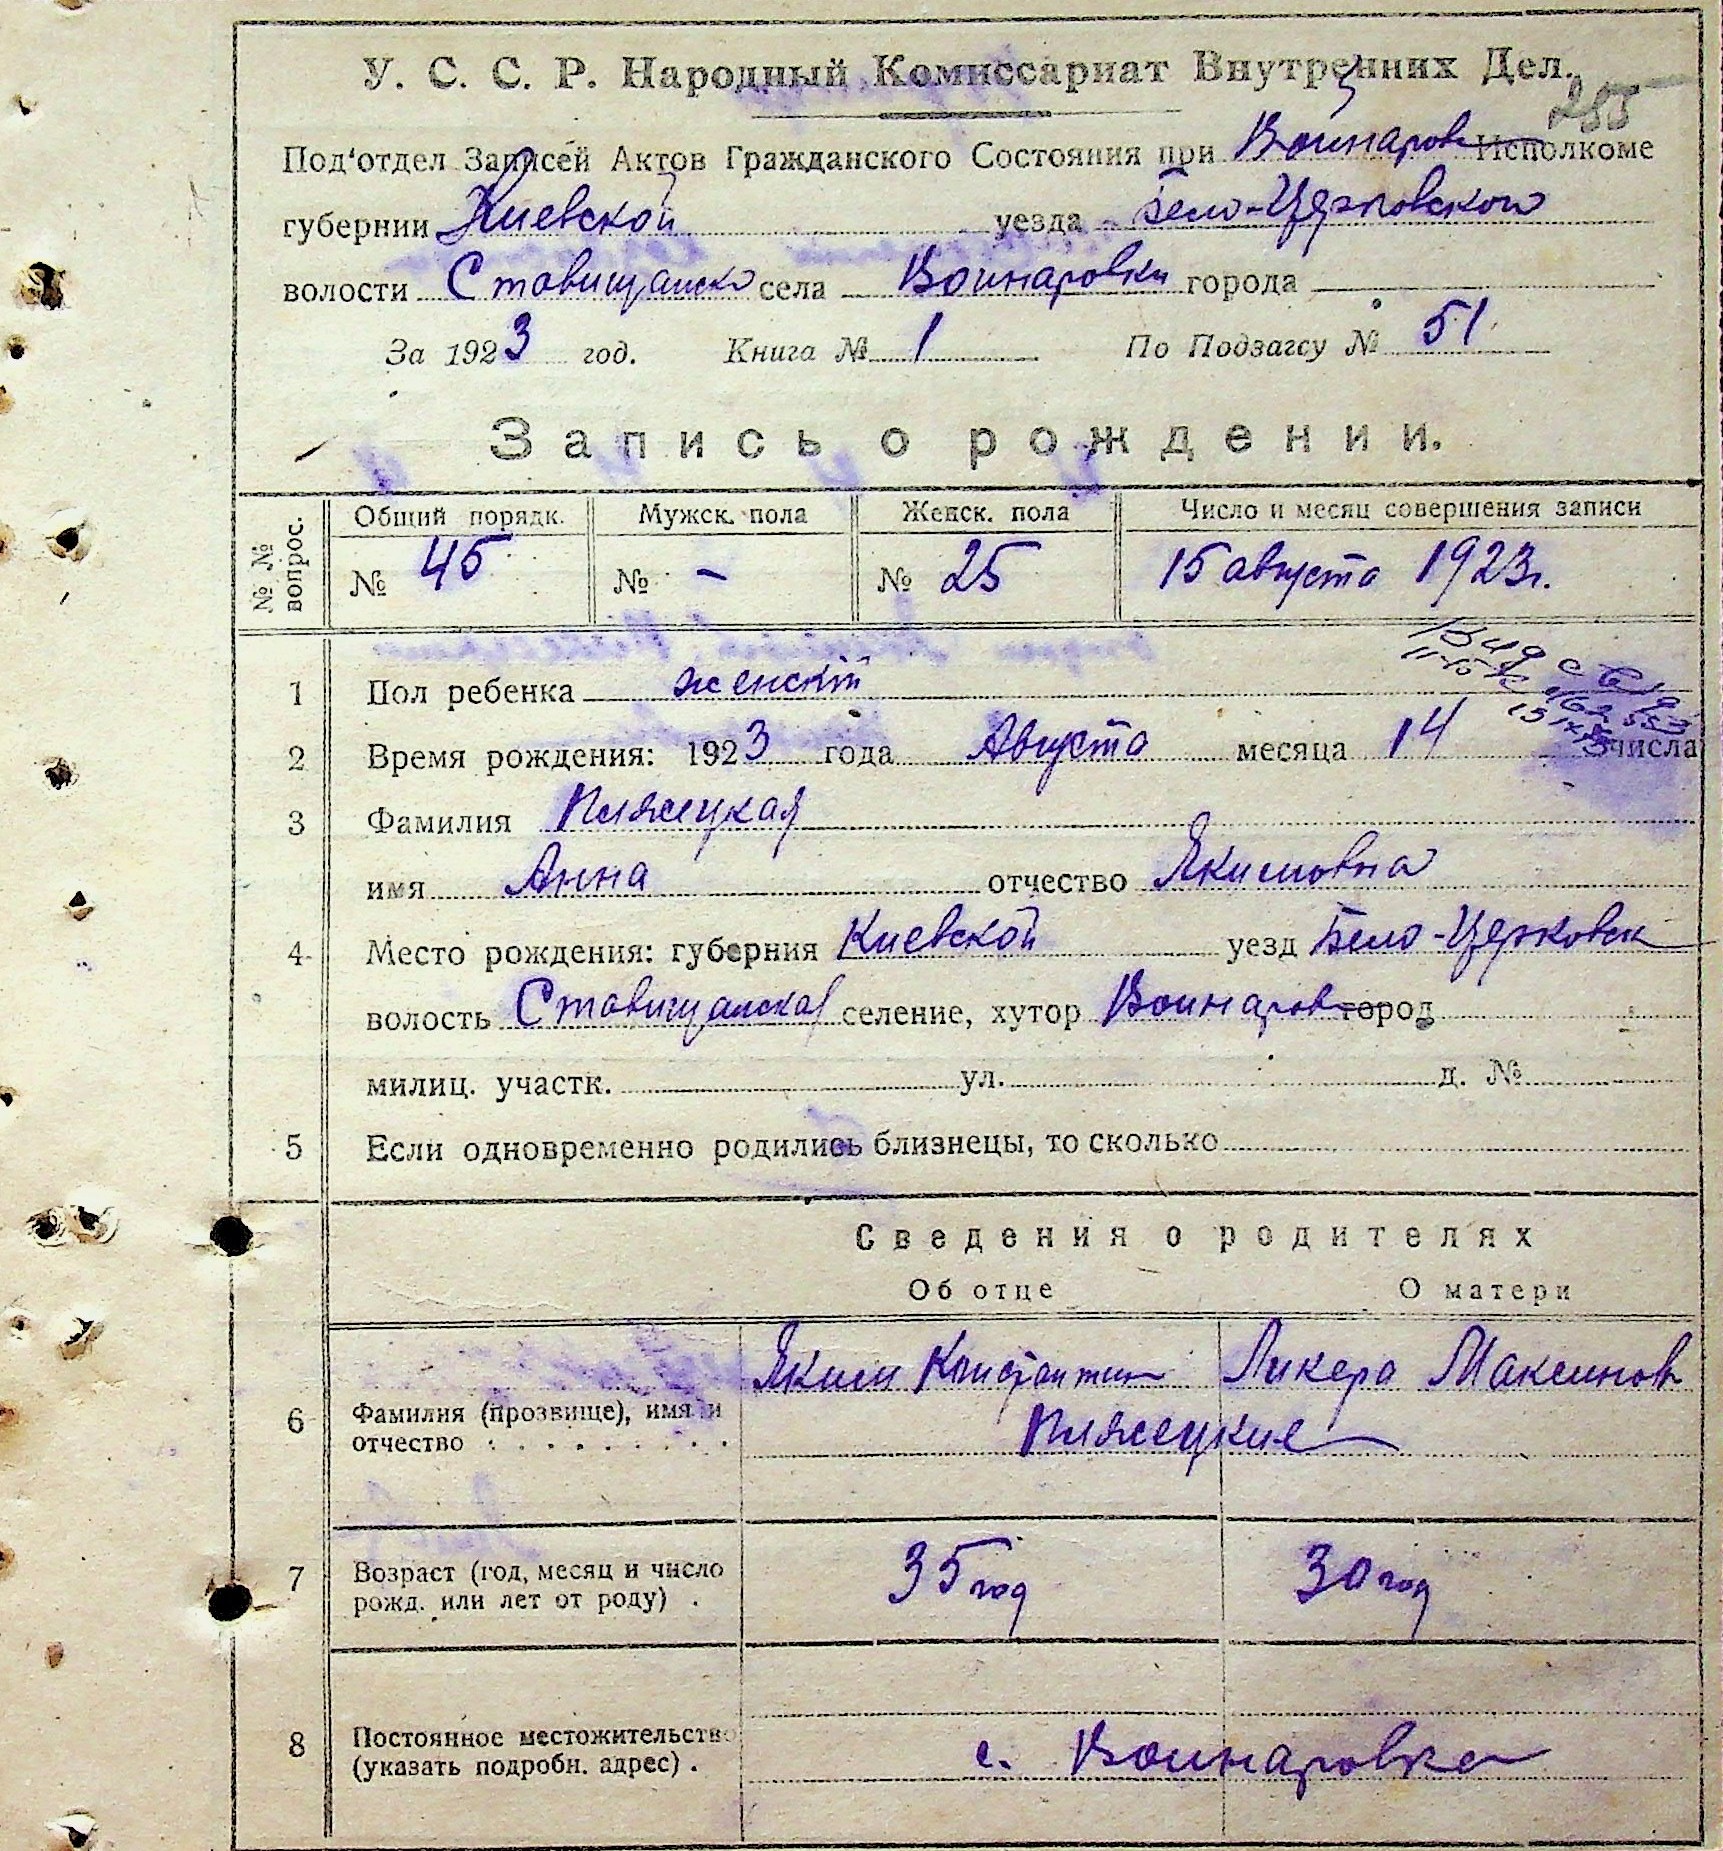 У. С. С. Р. Народный Комиссариат Внутренних Дел.
255
Под'отдел Записей Актов Гражданского Состояния при Войнаров Исполкоме
губернии Киевской уезда Бело-Церковского
волости Ставищанско села Воинаровки города
За 1923 год. Книга № 1 По Подзагсу № 51
Запись о рождении.
№№ вопрос.
Общий порядк. Мужск. пола Женск. пола Число и месяц совершения записи
№ 45 № - № 25 15 августа 1923 г.
1 Пол ребенка женскій
2 Время рождения: 1923 года Августа месяца 14 числа
3 Фамилия Пляжецкая
имя Анна отчество Якимовна
4 Место рождения: губерния Киевской уезд Бело-Церковск
волость Ставищанская селение, хутор Воинаров город
милиц. участк. ул. д. №
5 Если одновременно родились близнецы, то сколько
Сведения о родителях
Об отце О матери
Яким Константин Ликера Максимов
6 Фамилия (прозвище), имя и
отчество . . . . . . . . . Пляжецкие
7 Возраст (год, месяц и число
рожд. или лет от роду) . 35 год 30 год
8 Постоянное местожительство
(указать подробн. адрес) . с. Воинаровка